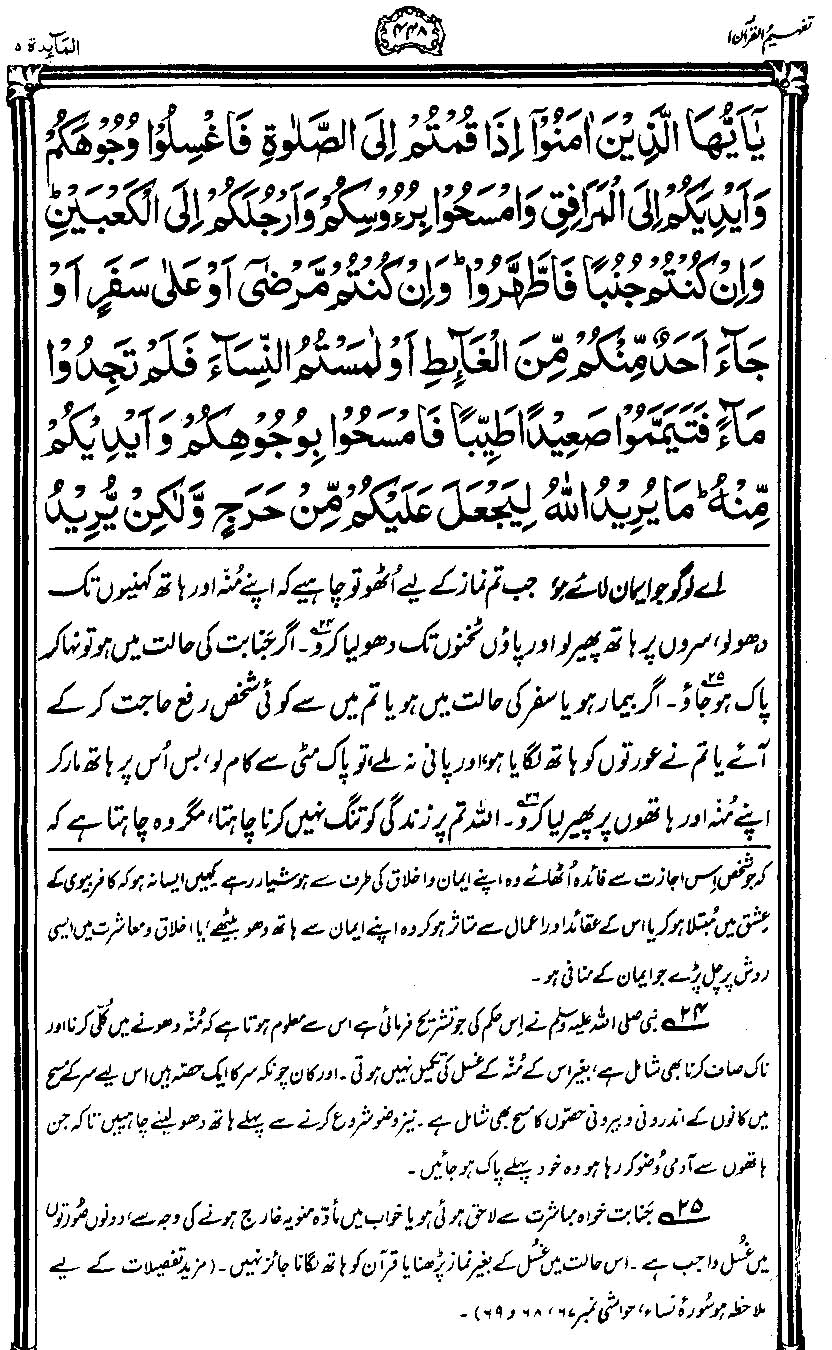 تفہیم القرآن ۱
۴۴۸
المآئدۃ ۵
يٰۤاَيُّهَا الَّذِيْنَ اٰمَنُوْۤا اِذَا قُمْتُمْ اِلَى الصَّلٰوةِ فَاغْسِلُوْا وُجُوْهَكُمْ
وَاَيْدِيَكُمْ اِلَى الْمَرَافِقِ وَامْسَحُوْا بِرُءُوْسِكُمْ وَاَرْجُلَكُمْ اِلَى الْكَعْبَيْنِ ؕ
وَاِنْ كُنْتُمْ جُنُبًا فَاطَّهَّرُوْا ؕ وَاِنْ كُنْتُمْ مَّرْضٰۤى اَوْ عَلٰى سَفَرٍ اَوْ
جَآءَ اَحَدٌ مِّنْكُمْ مِّنَ الْغَآئِطِ اَوْ لٰمَسْتُمُ النِّسَآءَ فَلَمْ تَجِدُوْا
مَآءً فَتَيَمَّمُوْا صَعِيْدًا طَيِّبًا فَامْسَحُوْا بِوُجُوْهِكُمْ وَاَيْدِيْكُمْ
مِّنْهُ ؕ مَا يُرِيْدُ اللّٰهُ لِيَجْعَلَ عَلَيْكُمْ مِّنْ حَرَجٍ وَّلٰكِنْ يُّرِيْدُ
اے لوگو جو ایمان لائے ہو، جب تم نماز کے لیے اُٹھو تو چاہیے کہ اپنے مُنہ اور ہاتھ کہنیوں تک
دھولو، سروں پر ہاتھ پھیر لو اور پاؤں ٹخنوں تک دھولیا کرو۲۴۔ اگر جَنابت کی حالت میں ہو تو نہا کر
پاک ہوجاؤ۲۵۔ اگر بیمار ہو یا سفر کی حالت میں ہو یا تم میں سے کوئی شخص رفع حاجت کر کے
آئے یا تم نے عورتوں کو ہاتھ لگایا ہو، اور پانی نہ ملے، تو پاک مٹی سے کام لو، بس اُس پر ہاتھ مار کر
اپنے مُنہ اور ہاتھوں پر پھیر لیا کرو۲۶۔ اللہ تم پر زندگی کو تنگ نہیں کرنا چاہتا، مگر وہ چاہتا ہے کہ
کہ جو شخص اِس اجازت سے فائدہ اُٹھائے وہ اپنے ایمان و اخلاق کی طرف سے ہوشیار رہے کہیں ایسا نہ ہو کہ کافر بیوی کے
عشق میں مُبتلا ہو کر یا اس کے عقائد اور اعمال سے متاثر ہو کر وہ اپنے ایمان سے ہاتھ دھو بیٹھے، یا اخلاق و معاشرت میں ایسی
روش پر چل پڑے جو ایمان کے منافی ہو۔
۲۴ نبی صلی اللہ علیہ وسلم نے اِس حکم کی جو تشریح فرمائی ہے اس سے معلوم ہوتا ہے کہ مُنہ دھونے میں کُلّی کرنا اور
ناک صاف کرنا بھی شامل ہے، بغیر اس کے مُنہ کے غسل کی تکمیل نہیں ہوتی۔ اور کان چونکہ سر کا ایک حصّہ ہیں اس لیے سر کے مسح
میں کانوں کے اندرونی و بیرونی حصّوں کا مسح بھی شامل ہے۔ نیز وضو شروع کرنے سے پہلے ہاتھ دھو لینے چاہییں تاکہ جن
ہاتھوں سے آدمی وُضو کر رہا ہو وہ خود پہلے پاک ہو جائیں۔
۲۵ جَنابت خواہ مباشرت سے لاحق ہوئی ہو یا خواب میں مادّہ منویہ خارج ہونے کی وجہ سے، دونوں صُورتوں
میں غُسل واجب ہے۔ اس حالت میں غُسل کے بغیر نماز پڑھنا یا قرآن کو ہاتھ لگانا جائز نہیں۔ (مزید تفصیلات کے لیے
ملاحظہ ہو سُورۂ نساء، حواشی نمبر ۶۷، ۶۸ و ۶۹)۔